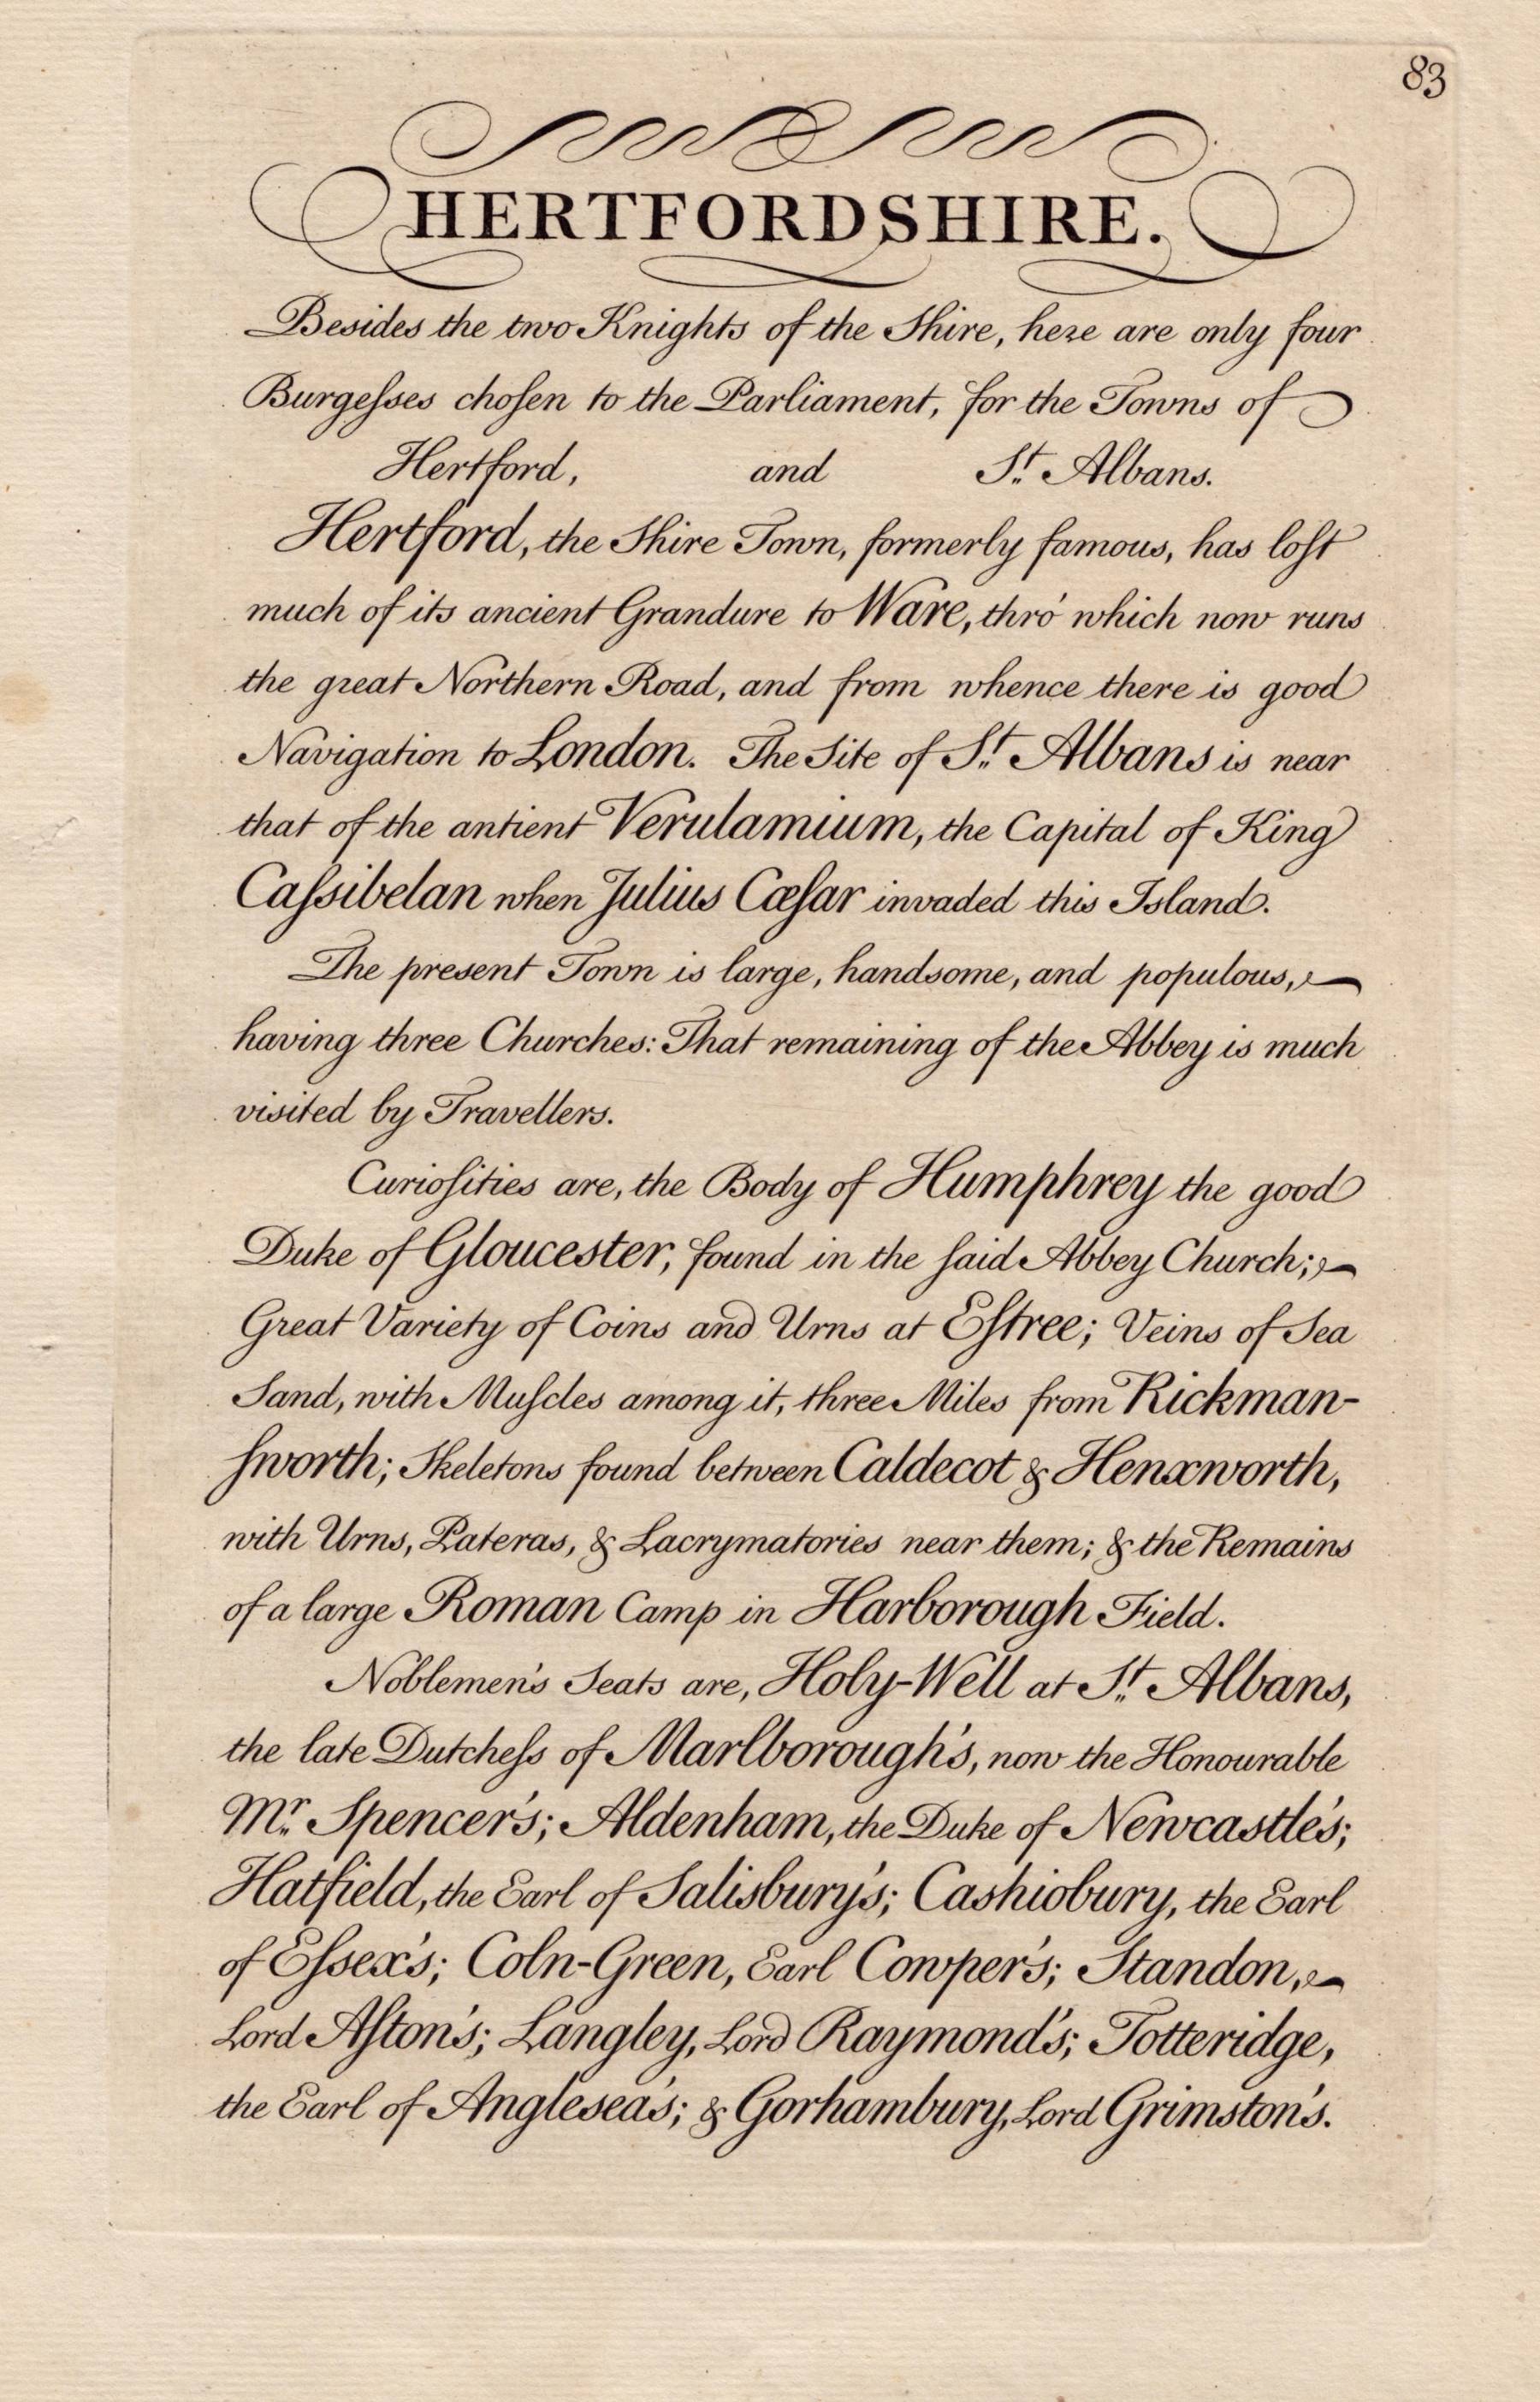 83
HERTFORDSHIRE.
Besides the two Knights of the Shire, here are only four
Burgeſses choſen to the Parliament, for the Towns of
Hertford, and St. Albans.
Hertford, the Shire Town, formerly famous, has loſt
much of its ancient Grandure to Ware, thro' which now runs
the great Northern Road, and from whence there is good
Navigation to London. The Site of St. Albans is near
that of the antient Verulamium, the Capital of King
Caſsibelan when Julius Cæſar invaded this Island.
The present Town is large, handsome, and populous,
having three Churches: That remaining of the Abbey is much
visited by Travellers.
Curioſities are, the Body of Humphrey the good
Duke of Gloucester, found in the ſaid Abbey Church;
Great Variety of Coins and Urns at Eſtree; Veins of Sea
Sand, with Muſcles among it, three Miles from Rickman-
ſworth; Skeletons found between Caldecot & Henxworth,
with Urns, Pateras, & Lacrymatories near them; & the Remains
of a large Roman Camp in Harborough Field.
Noblemen's Seats are, Holy-Well at St. Albans,
the late Dutcheſs of Marlborough's, now the Honourable
Mr. Spencer's; Aldenham, the Duke of Newcastle's;
Hatfield, the Earl of Salisbury's; Cashiobury, the Earl
of Eſsex's; Coln-Green, Earl Cowper's; Standon,
Lord Aſton's; Langley, Lord Raymond's; Totteridge,
the Earl of Anglesea's; & Gorhambury, Lord Grimston's.